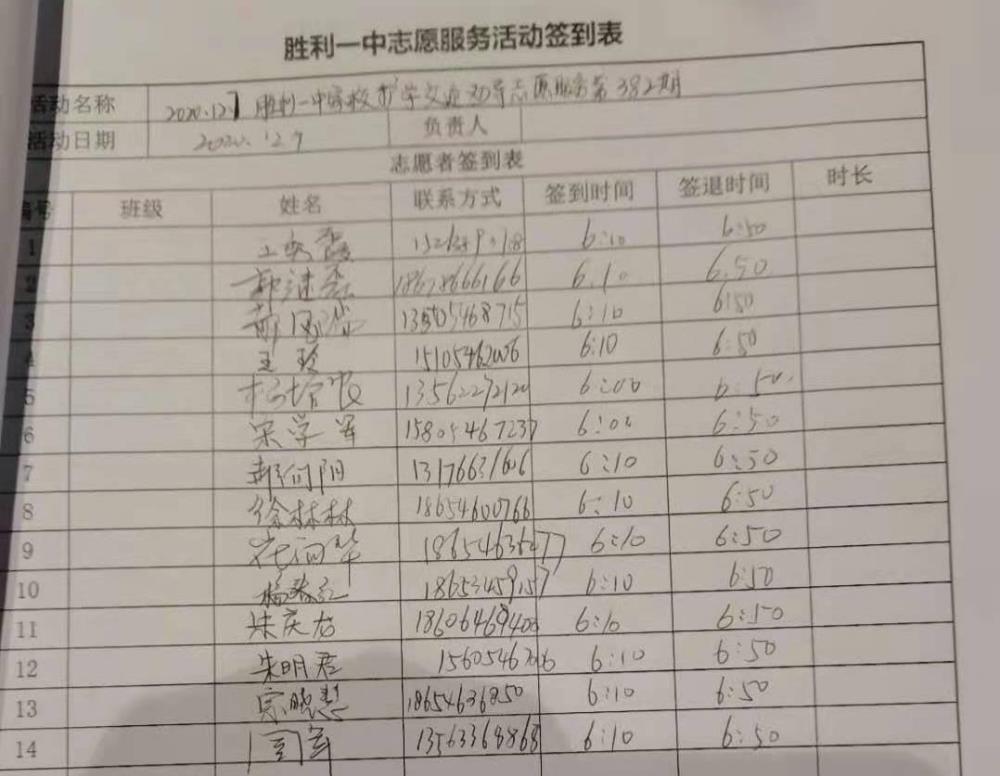 胜利一中志愿服务活动签到表
活动名称 2020.12.7 胜利一中 志愿服务第382期
活动日期 2020.12.7 负责人
志愿者签到表
编号 班级 姓名 联系方式 签到时间 签退时间 时长
1 6:10 6:50
2 18678666166 6.10 6.50
3 13505468715 6:10 6:50
4 王玲 15105462006 6:10 6:50
5 6:00 6:50
6 宋学军 15805467237 6:00 6:50
7 郝向阳 13176631606 6:10 6:50
8 徐林林 18654600766 6:10 6:50
9 6:10 6:50
10 6:10 6:50
11 朱庆友 18606469400 6:10 6:50
12 朱明君 6:10 6:50
13 宗晓慧 18654636850 6:10 6:50
14 13563368868 6:10 6:50